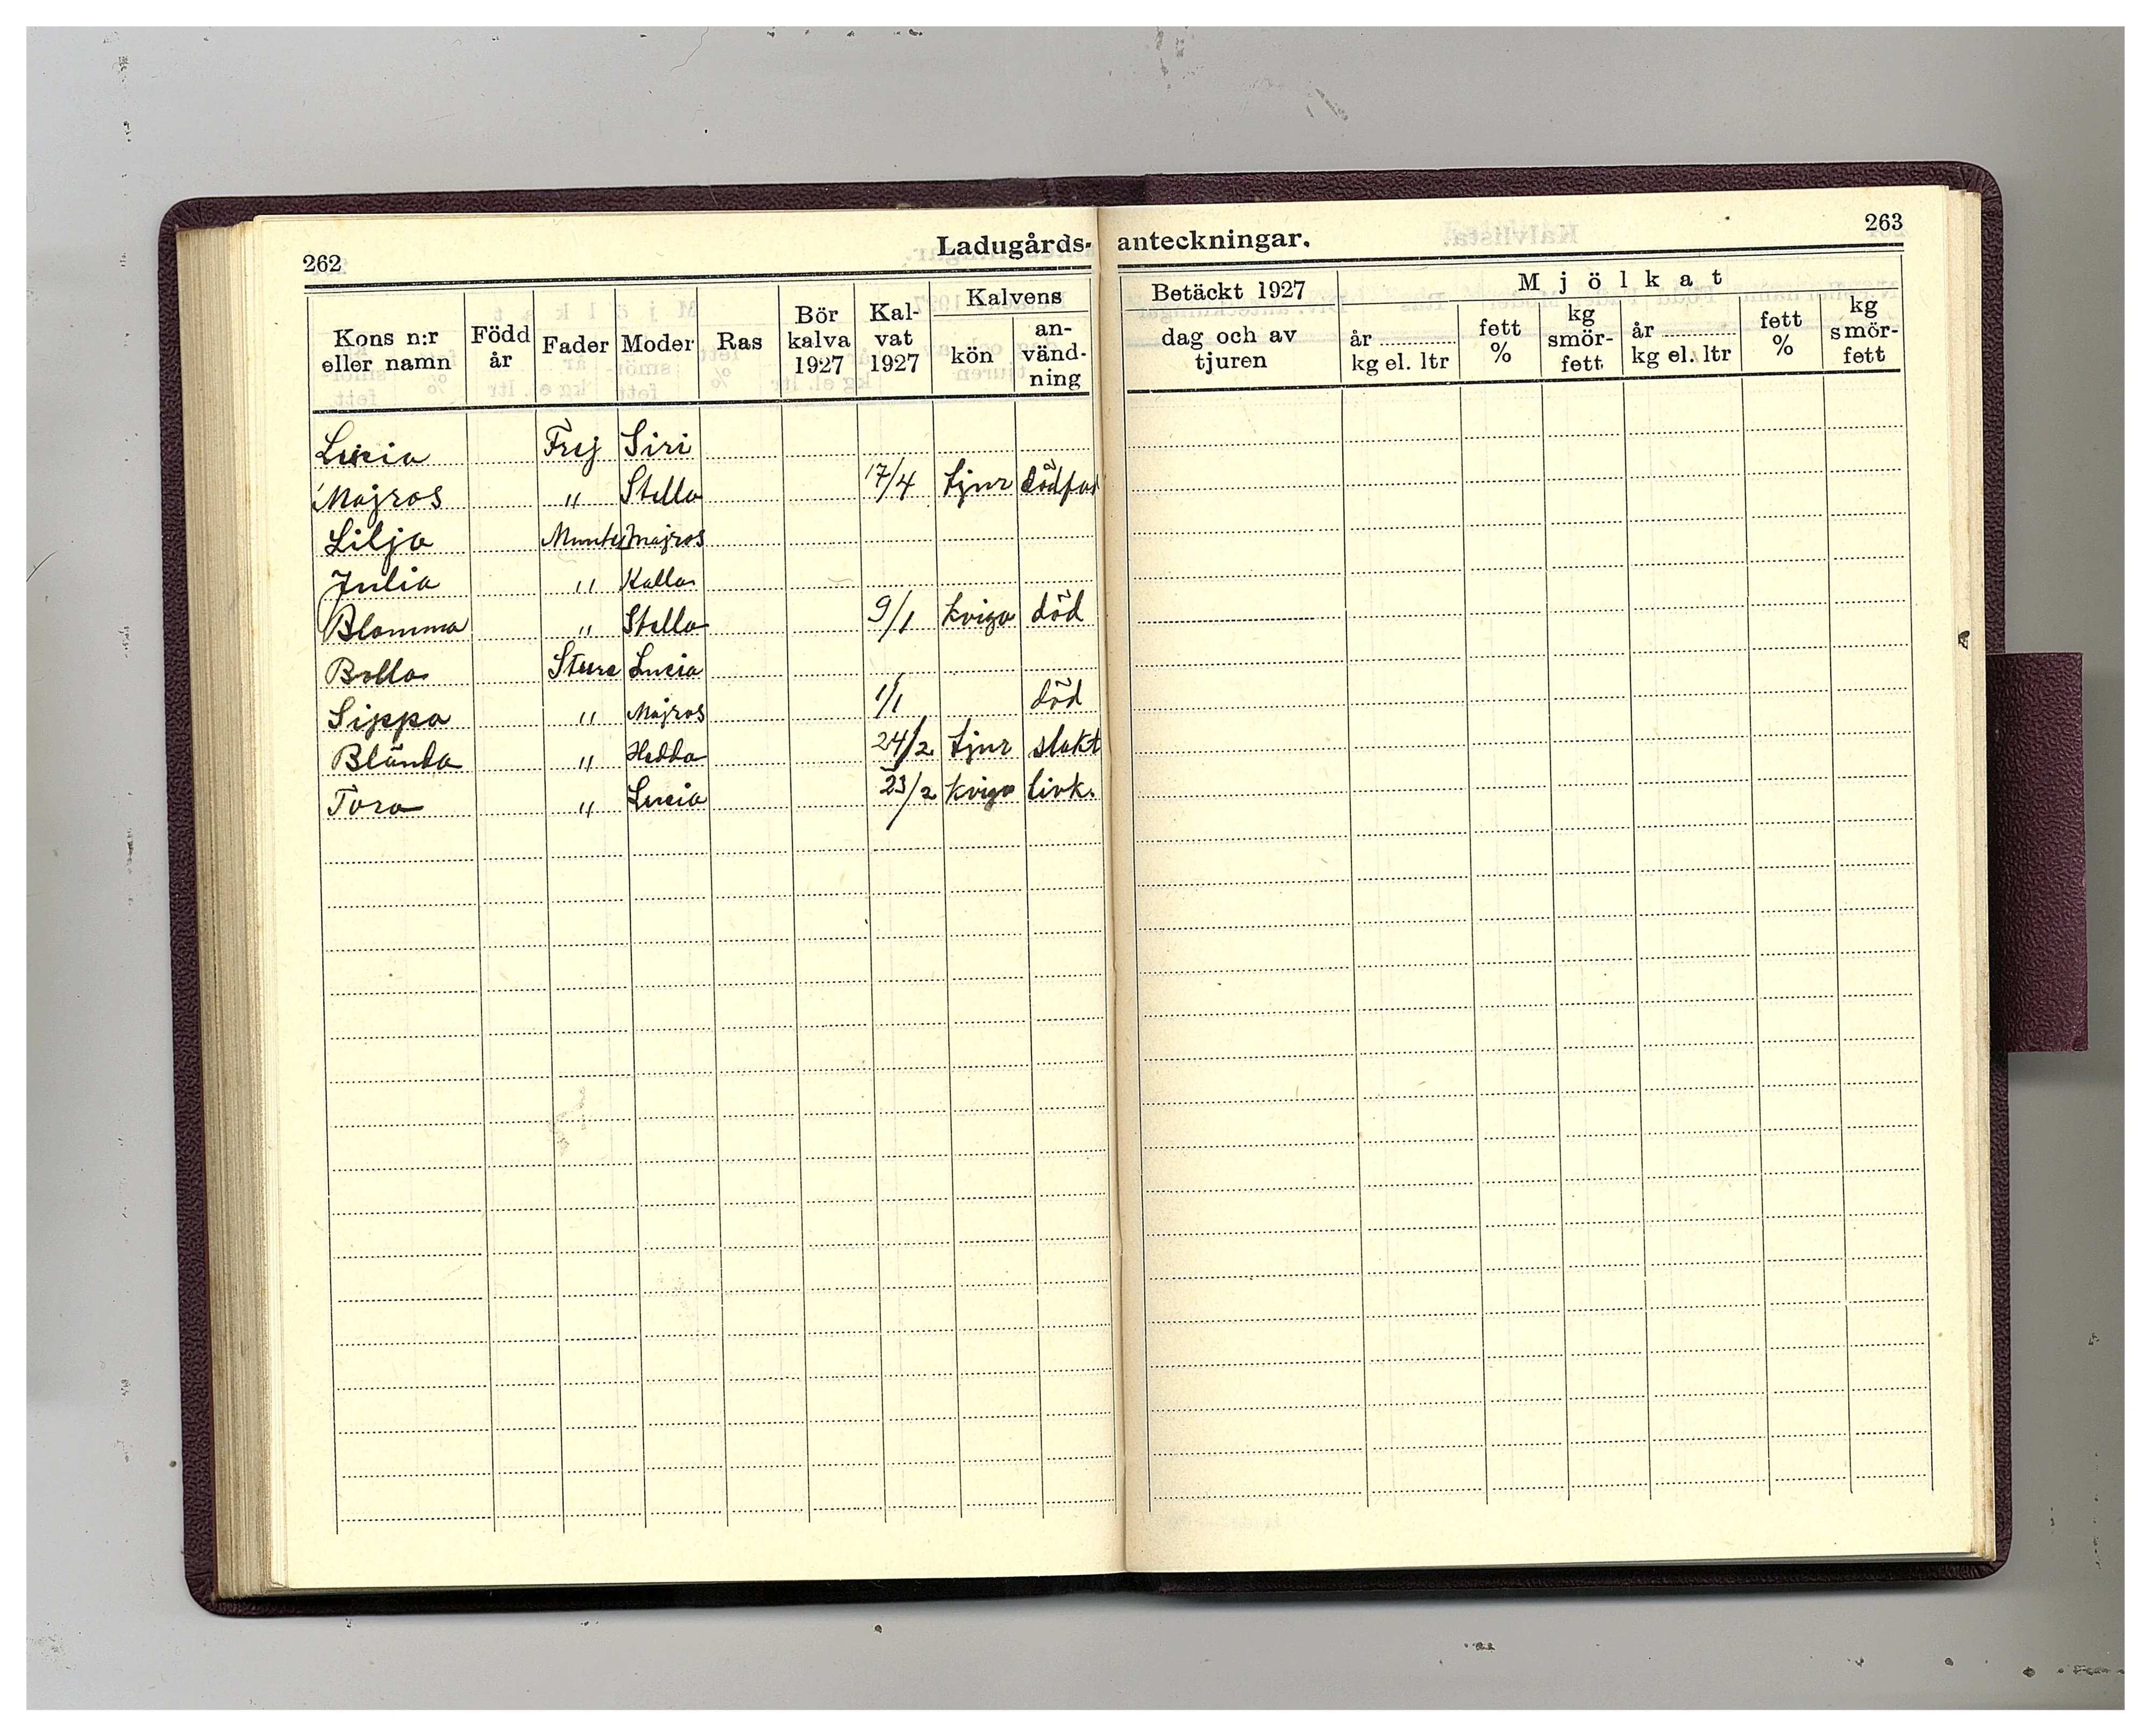 262
Ladugårds-
Kons n:r eller namn Född år Fader Moder Ras Bör kalva 1927 Kal-vat 1927 Kalvens kön an-vänd-ning
Lucia Frej Siri
Majros " Stella 17/4 tjur dödföd
Lilja Munter Majros
Julia " Kalla
Blomma " Stella 9/1 kviga död
Bolla Sture Lucia
Sippa " Majros 1/1 död
Blända " Hedda 24/2 tjur slakt
Tora " Lucia 23/2 kviga livk.
anteckningar.
263
Betäckt 1927 Mjölkat
dag och av tjuren år kg el. ltr fett % kg smör-fett år kg el. ltr fett % kg smör-fett